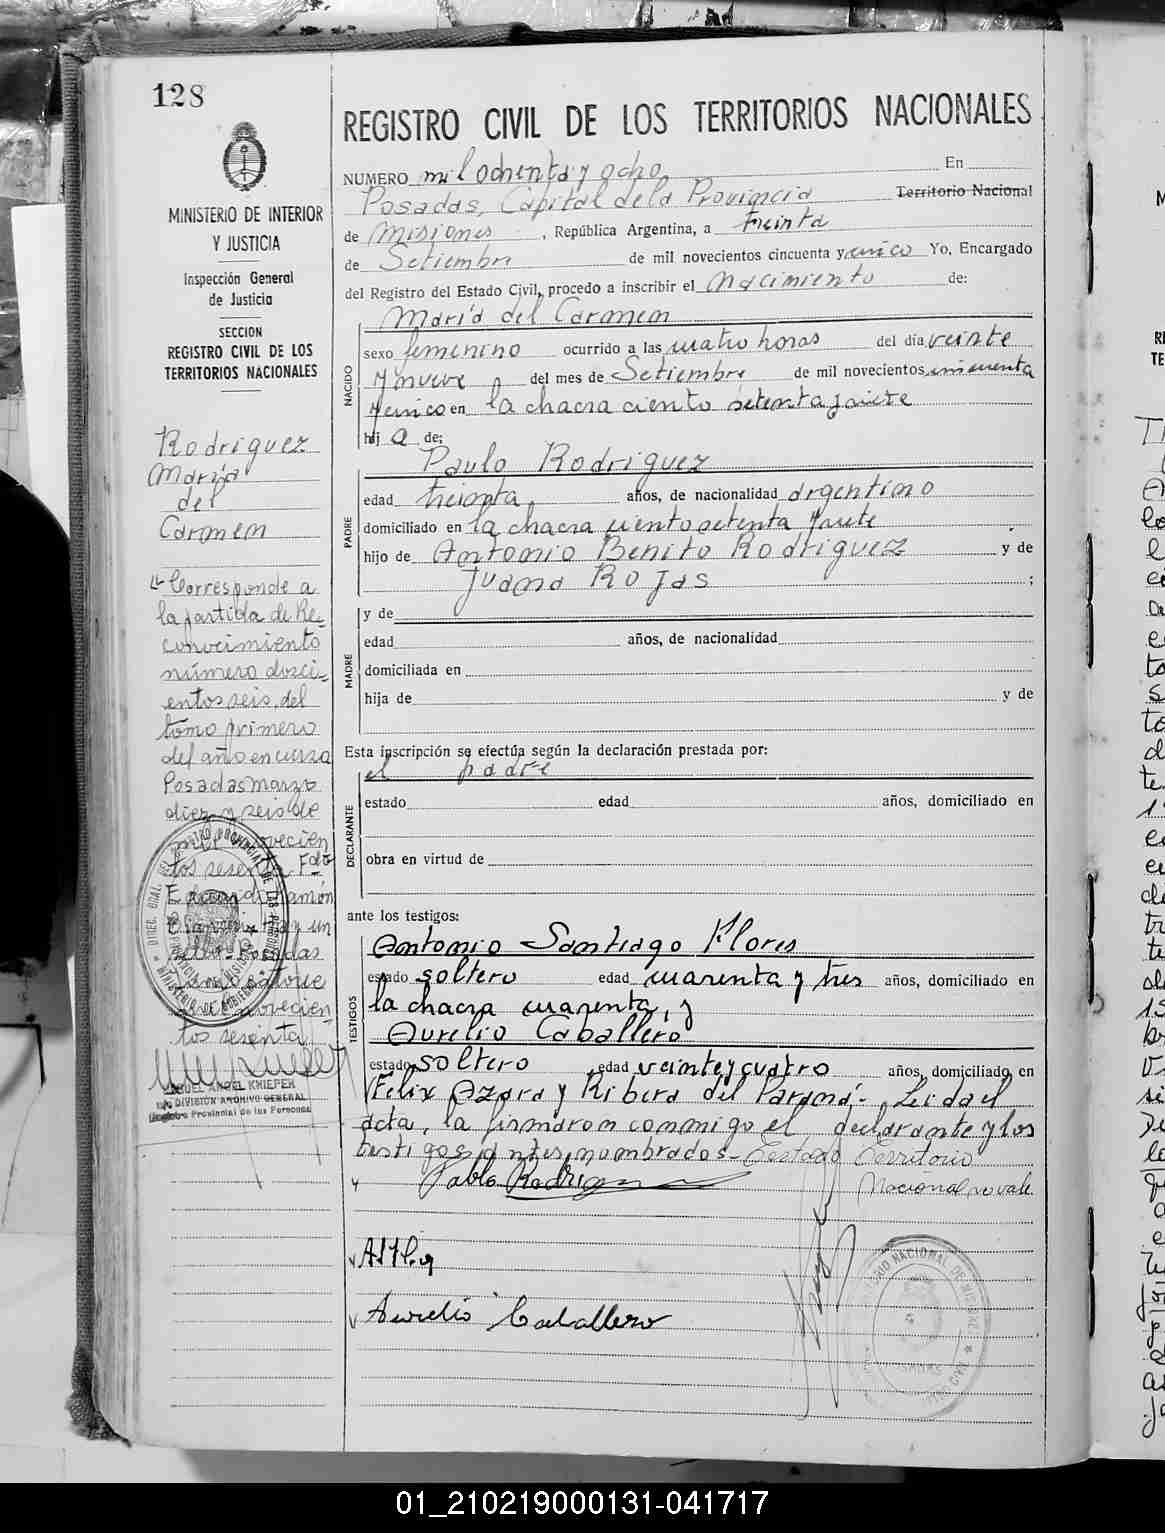 128
REGISTRO CIVIL DE LOS TERRITORIOS NACIONALES
MINISTERIO DE INTERIOR
Y JUSTICIA
Inspección General
de Justicia
SECCION
REGISTRO CIVIL DE LOS
TERRITORIOS NACIONALES
Rodriguez
María
del
Carmen
"Corresponde a
la partida de Re-
conocimiento
número dosci-
entos seis, del
tomo primero
del año en curso
Posadas marzo
diez y seis de
mil novecien
tos sesenta Fdo
un
Posadas
catorce
novecien-
tos sesenta
MIGUEL ANGEL KNIEPER
DIVISIÓN ARCHIVO GENERAL
Registro Provincial de las Personas
NUMERO mil ochenta y ocho En
Posadas, Capital de la Provincia Territorio Nacional
de Misiones, República Argentina, a treinta
de Setiembre de mil novecientos cincuenta y cinco Yo, Encargado
del Registro del Estado Civil, procedo a inscribir el Nacimiento de:
NACIDO
María del Carmen
sexo femenino ocurrido a las cuatro horas del día veinte
y nueve del mes de Setiembre de mil novecientos cincuenta
y cinco en la chacra ciento setenta y siete
hija de:
PADRE
Paulo Rodriguez
edad treinta años, de nacionalidad argentino
domiciliado en la chacra ciento setenta y siete
hijo de Antonio Benito Rodriguez y de
Juana Rojas ;
MADRE
y de
edad años, de nacionalidad
domiciliada en
hija de y de
Esta inscripción se efectúa según la declaración prestada por:
DECLARANTE
el padre
estado edad años, domiciliado en
obra en virtud de
ante los testigos:
TESTIGOS
Antonio Santiago Flores
estado soltero edad cuarenta y tres años, domiciliado en
la chacra cuarenta, y
Aurelio Caballero
estado soltero edad veinte y cuatro años, domiciliado en
Felix Azara y Ribera del Paraná.- Leida el
acta, la firmaron conmigo el declarante y los
testigos antes nombrados- Testado Territorio
Nacional no vale.
Pablo Rodrigu
Aurelio Caballero
01_210219000131-041717